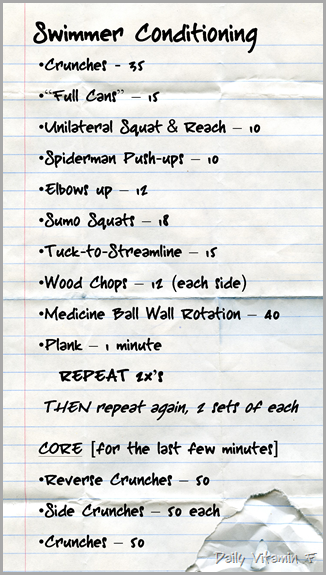 Swimmer Conditioning
•Crunches - 35
•“Full Cans” – 15
•Unilateral Squat & Reach – 10
•Spiderman Push-ups – 10
•Elbows up – 12
•Sumo Squats – 18
•Tuck-to-Streamline – 15
•Wood Chops – 12 (each side)
•Medicine Ball Wall Rotation – 40
•Plank – 1 minute
REPEAT 2x's
THEN repeat again, 2 sets of each
CORE [for the last few minutes]
•Reverse Crunches – 50
•Side Crunches – 50 each
•Crunches – 50
Daily Vitamin F